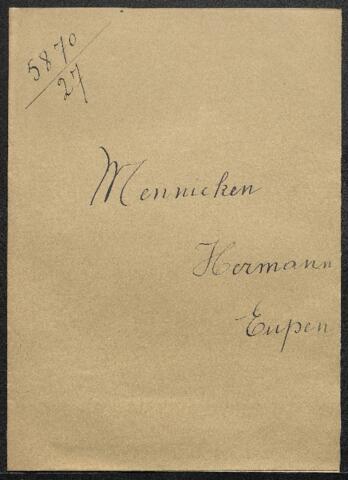 5870
27
Mennicken
Hermann
Eupen